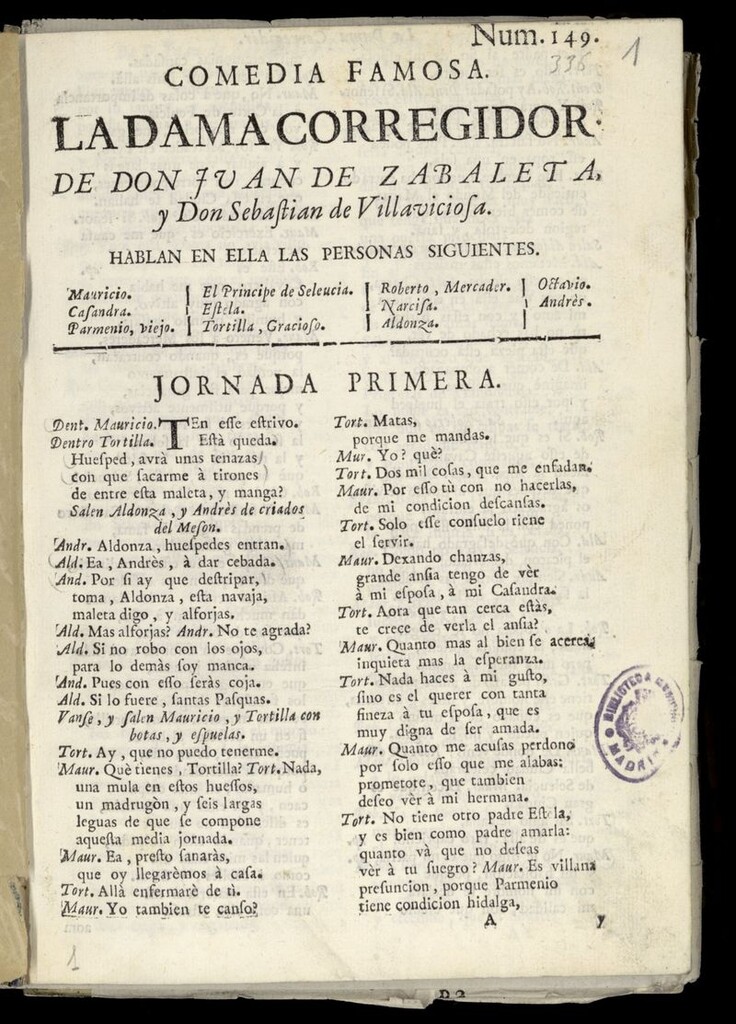 Num. 149.
336
1
COMEDIA FAMOSA.
LA DAMA CORREGIDOR.
DE DON JUAN DE ZABALETA,
y Don Sebaſtian de Villavicioſa.
HABLAN EN ELLA LAS PERSONAS SIGUIENTES.
Mauricio.
Caſandra.
Parmenio, viejo.
El Principe de Seleucia.
Eſtela.
Tortilla, Gracioſo.
Roberto, Mercader.
Narciſa.
Aldonza.
Octavio.
Andrès.
JORNADA PRIMERA.
Dent. Mauricio. TEn eſſe eſtrivo.
Dentro Tortilla. Eſtà queda.
Hueſped, avrà unas tenazas
con que ſacarme à tirones
de entre eſta maleta, y manga?
Salen Aldonza, y Andrès de criados
del Meſon.
Andr. Aldonza, hueſpedes entran.
Ald. Ea, Andrès, à dar cebada.
And. Por ſi ay que deſtripar,
toma, Aldonza, eſta navaja,
maleta digo, y alforjas.
Ald. Mas alforjas? Andr. No te agrada?
Ald. Si no robo con los ojos,
para lo demàs ſoy manca.
And. Pues con eſſo ſeràs coja.
Ald. Si lo fuere, ſantas Paſquas.
Vanſe, y ſalen Mauricio, y Tortilla con
botas, y eſpuelas.
Tort. Ay, que no puedo tenerme.
Maur. Què tienes, Tortilla? Tort. Nada,
una mula en eſtos hueſſos,
un madrugòn, y ſeis largas
leguas de que ſe compone
aqueſta media jornada.
Maur. Ea, preſto ſanaràs,
que oy llegarèmos à caſa.
Tort. Allà enfermarè de tì.
Maur. Yo tambien te canſo?
Tort. Matas,
porque me mandas.
Mur. Yo? què?
Tort. Dos mil coſas, que me enfadan.
Maur. Por eſſo tù con no hacerlas,
de mi condicion deſcanſas.
Tort. Solo eſſe conſuelo tiene
el ſervir.
Maur. Dexando chanzas,
grande anſia tengo de vèr
à mi eſpoſa, à mi Caſandra.
Tort. Aora que tan cerca eſtàs,
te crece de verla el anſia?
Maur. Quanto mas al bien ſe acerca,
inquieta mas la eſperanza.
Tort. Nada haces à mi guſto,
ſino es el querer con tanta
fineza à tu eſpoſa, que es
muy digna de ſer amada.
Maur. Quanto me acuſas perdono
por ſolo eſſo que me alabas:
prometote, que tambien
deſeo vèr à mi hermana.
Tort. No tiene otro padre Eſtela,
y es bien como padre amarla:
quanto và que no deſeas
vèr à tu ſuegro? Maur. Es villana
preſuncion, porque Parmenio
tiene condicion hidalga,
A
y
BIBLIOTECA
MADRID
1